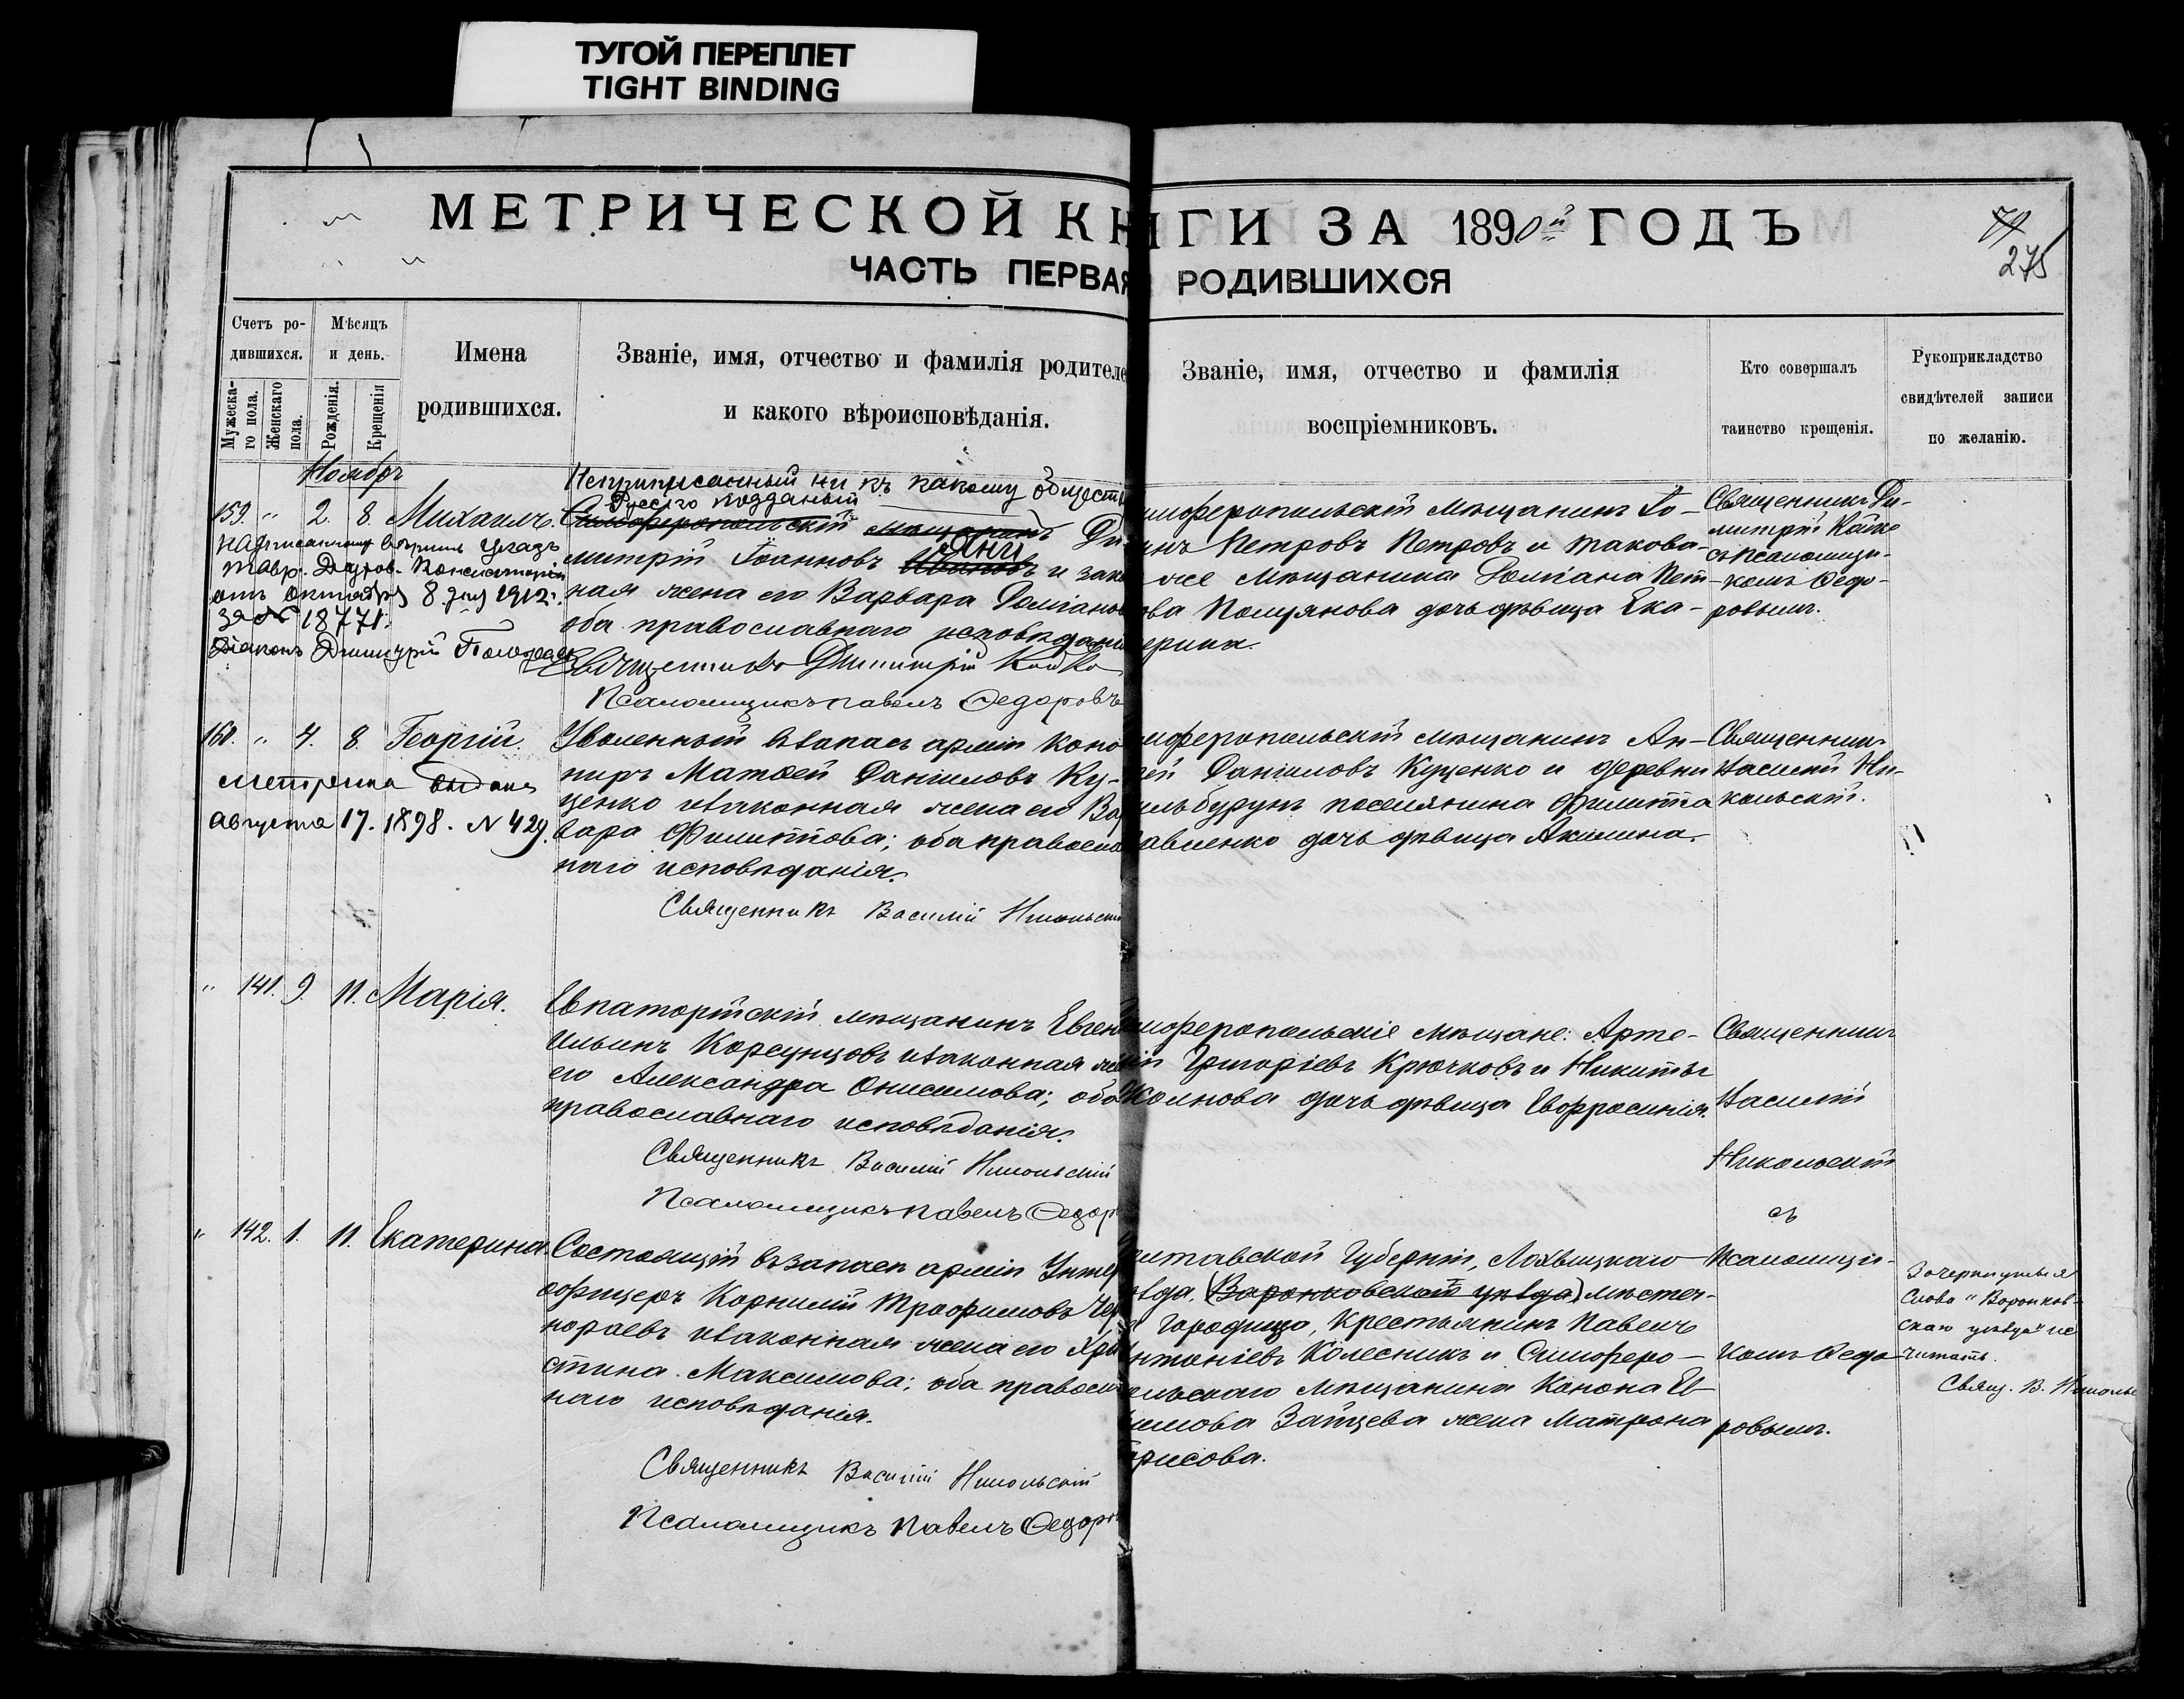 ТУГОЙ ПЕРЕПЛЕТ
TIGHT BINDING
МЕТРИЧЕСКОЙ КНИГИ ЗА 1890й ГОДЪ
ЧАСТЬ ПЕРВАЯ РОДИВШИХСЯ
79
275
Счетъ ро-
дившихся.
Мужеска-
го пола.
Женскаго
пола.
Мѣсяцъ
и день.
Рожденія.
Крещенія
Имена
родившихся.
Званіе, имя, отчество и фамилія родителе
и какого вѣроисповѣданія.
Званіе, имя, отчество и фамилія
воспріемниковъ.
Кто совершалъ
таинство крещенія.
Рукоприкладство
свидѣтелей записи
по желанію.
Ноябрь
159. " 2. 8. Михаилъ.
Надписанному вѣрить Указъ
Тавр. Духов. Консисторіи
отъ октября 8 дня 1912 г.
за № 18771.
Діаконъ Димитрій
Неприписанный ни къ какому обществ
Русско подданый
Симферопольскій мѣщанинъ Ди-
Янч
митрій Іоанновъ Ивановъ и зако
ная жена его Варвара Доміанов
оба православнаго исповѣдані
Священникъ Димитрій Койко
Псаломщикъ Павелъ Федоровъ
имферопольскій мѣщанинъ Іо-
инъ Петровъ Петровъ и такова-
же мѣщанина Доміана Пет-
ова Полуянова дочь дѣвица Ека-
ерина.
Священникъ Ди-
митрій Койко
съ псаломщи-
комъ Федо-
ровымъ.
160. " 4. 8. Георгій.
Метрика выдана
Августа 17. 1898. № 429.
Уволенный въ запасъ арміи кано
ниръ Матѳей Даниловъ Ку-
ценко и законная жена его Вар
вара Филиппова; оба правосла
наго исповѣданія.
Священникъ Василій Никольскі
имферопольскій мѣщанинъ Ан-
рей Даниловъ Куценко и деревни
ильбурунъ поселянина Филиппа
авленко дочь дѣвица Акилина.
Священникъ
Василій Ни-
кольскій.
" 141. 9. 11. Марія.
Евпаторійскій мѣщанинъ Евген
Ильинъ Корсунцовъ и законная же
его Александра Онисимова; оба
православнаго исповѣданія.
Священникъ Василій Никольскій
Псаломщикъ Павелъ Федор
имферопольскіе мѣщане: Арте-
ій Григоріевъ Крючковъ и Никиты
дочь дѣвица Евфросинія.
Священникъ
Василій
Никольскій
съ
псаломщи-
комъ Федо-
ровымъ.
" 142. 1. 11. Екатерина.
Состоящій въ запасѣ арміи Унтер
офицеръ Корнилій Трофимовъ Чер
нораевъ и законная жена его Хри
стина Максимова; оба правосла
наго исповѣданія.
Священникъ Василій Никольскій
Псаломщикъ Павелъ Федоров
олтавской Губерніи, Лохвицкаго
ѣзда, (Воронковской уѣзда) мѣстеч-
а Городища, Крестьянинъ Павелъ
нтоніевъ Колесникъ и Симферо-
ольскаго мѣщанина Конона Ев-
имова Зайцева жена Матрона
орисова.
Зачеркнутыя
слова "Воронков-
скаго уѣзда" не
читать.
Свящ. В. Никольс